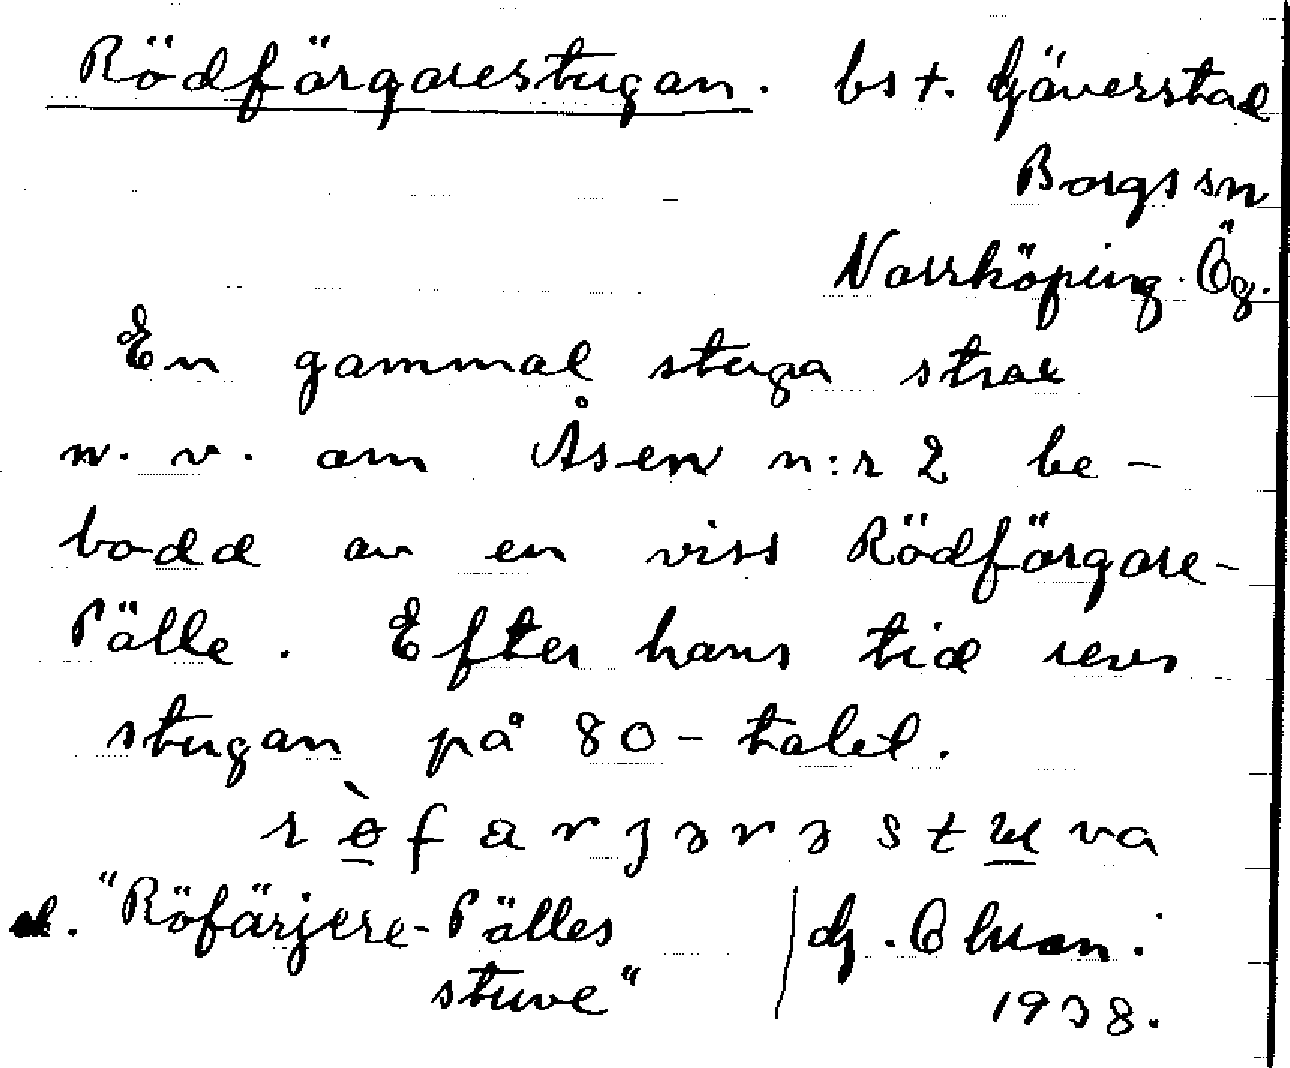 Rödfärgarestugan. bst. Gäverstad
Borgs sn
Norrköping. Ög.
En gammal stuga strax
n. v. om Åsen n:r 2 be-
bodd av en viss Rödfärgare-
Pälle. Efter hans tid revs
stugan på 80-talet.
"Röfärjere-Pälles
stuve"
1938.